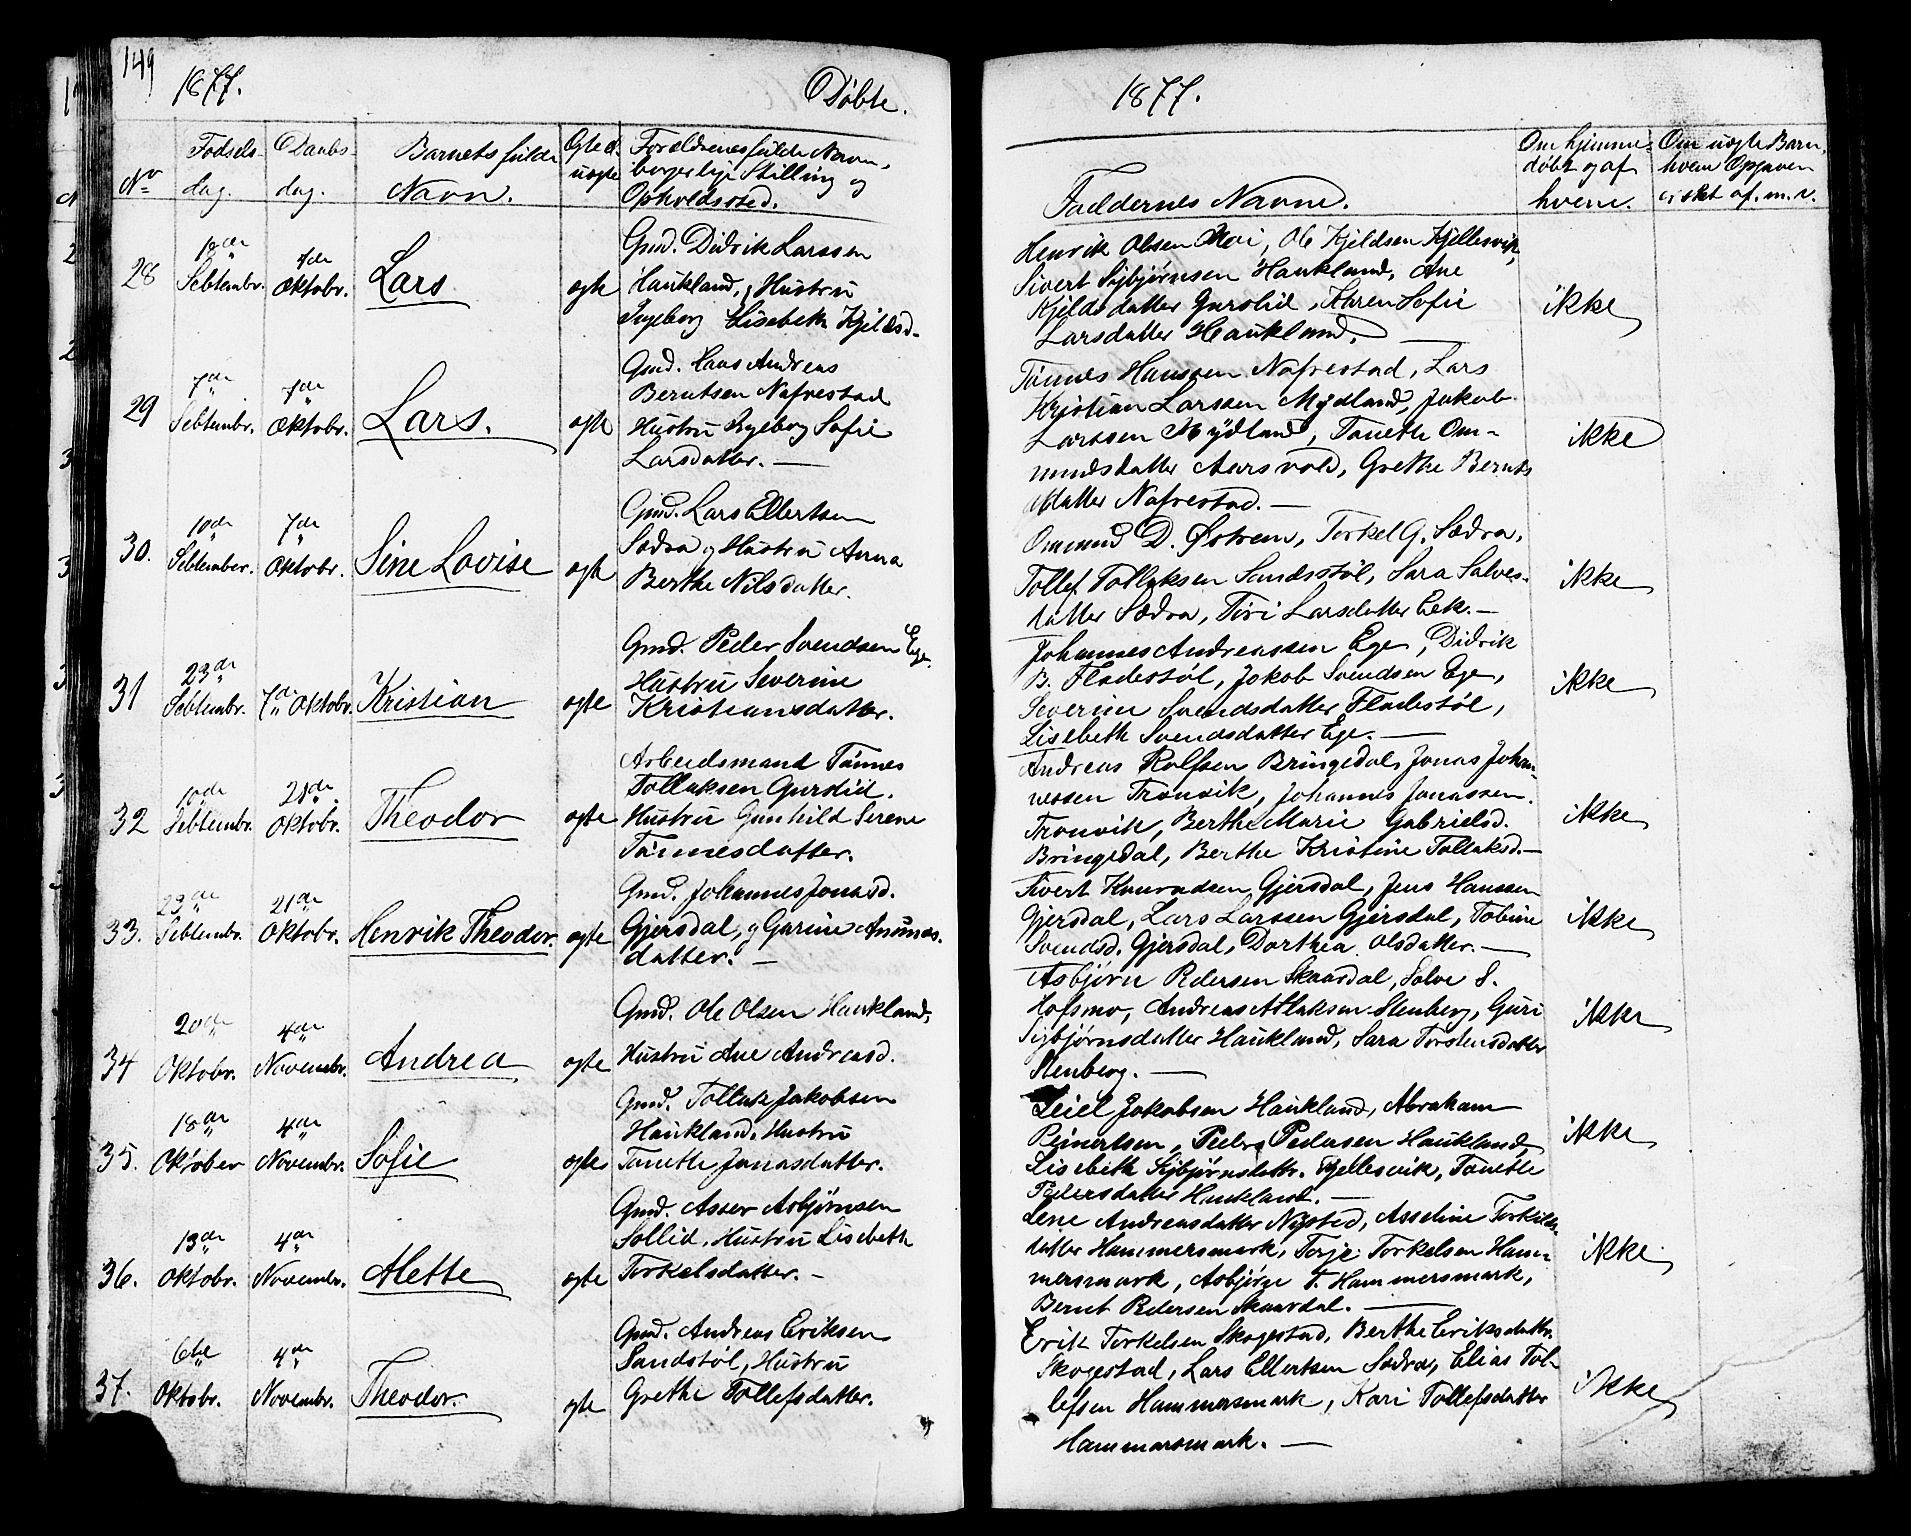 149
1877.
Døbte.
No
Fødsels-
dag.
Daabs-
dag.
Barnets fulde
Navn.
Ægte el.
uægte
Forældrenes fulde Navn,
borgerlige Stilling og
Opholdssted.
28
Sebtembr.
7de
Oktobr.
Lars
ægte
Gmd. Didrik Larssen
Haukland, Hustru
Ingeborg Lisebeth Kjeldsd.
29
7de
Sebtembr.
7de
Oktobr.
Lars.
ægte
Gmd. Hans Andreas
Berntsen Nafrestad
Hustru Ingeborg Sofie
Larsdatter. —
30.
10de
Sebtember.
7de
Oktobr.
Sine Lovise
ægte
Gmd. Lars Ellertsen
Sædra og Hustru Anna
Berthe Nilsdatter.
31
23de
Sebtembr.
7de Oktobr.
Kristian
ægte
Gmd. Peder Svendsen Ege.
Hustru Severine
Kristiansdatter.
32
10de
Sebtembr.
21de
Oktobr.
Theodor
ægte
Arbeidsmand Tønnes
Tollaksen Gurslid.
Hustru Gunhild Serene
Tønnesdatter.
33.
Sebtembr.
21de
Oktobr.
Henrik Theodor.
ægte
Gmd. Johannes Jonasd.
Gjersdal, og Gurine Anunds-
datter. —
34
20de
Oktobr.
4de
Novembr.
Andrea
ægte
Gmd. Ole Olsen Haukland,
Hustru Ane Andreasd.
35.
18de
Oktober
4de
Novembr.
Sofie
ægte
Gmd. Tollak Jakobsen
Haukland. Hustru
Tanethe Jonasdatter.
36.
13de
Oktobr.
4de
Novembr.
Mette
ægte
Gmd. Asser Asbjørnsen
Sollid, Hustru Lisebeth
Torkelsdatter. —
37.
6te
Oktobr.
4de
Novembr.
Theodor.
ægte
Gmd. Andreas Eriksen
Sandstøl, Hustru
Grethe Tollefsdatter.
1877.
Faddernes Navne.
Om hjemme-
døbt og af
hvem.
Om uægte Barn,
hvem Opgaven
er sket af. m. v.
Henrik Olsen Moi, Ole Kjeldsen Kjellesvik,
Sivert Sigbjørnsen Haukland, Ane
Kjeldsdatter Gurslid, Karen Sofie
Larsdatter Haukland. —
ikke
Tønnes Hanssen Nafrestad, Lars
Kristian Larssen Mydland, Jakob
Larssen Mydland, Taneth Om-
mundsdatter Aarsvold, Grethe Bernts
datter Nafrestad. —
ikke
Ommund D. Østrem, Torkel G. Sædra,
Tollef Tollaksen Sandsstøl, Sara Salves-
datter Sædra, Tiri Larsdatter Eek. —
ikke
Johannes Andreassen Ege, Didrik
B. Fladestøl, Jakob Svendsen Ege,
Severine Svendsdatter Fladestøl,
Lisebeth Svendsdatter Ege. —
ikke
Andreas Rolfsen Bringedal, Jonas Johan-
nessen Tronvik, Johannes Jonassen
Tronvik, Berthe Marie Gabrielsd.
Bringedal, Berthe Kristine Tollaksd. —
ikke
Sivert Knuradsen Gjersdal, Jens Hanssen
Gjersdal, Lars Larssen Gjersdal, Tobine
Svendsd. Gjersdal, Dorthea Olsdatter. —
ikke
Asbjørn Pedersen Skaardal, Salve S.
Hofsmo, Andreas Atlaksen Stenberg, Guri
Sigbjørnsdatter Haukland, Sara Torstensdatter
Stenberg. —
ikke
Leiel Jakobsen Haukland, Abraham
Reinertsen, Peder Pedersen Haukland,
Lisebeth Sigbjørnsdattr. Kjellesvik, Tanethe
Pedersdatter Haukland. —
ikke
Lene Andreasdatter Nysted, Asseline Torkils-
datter Hammersmark, Terje Torkelsen Ham-
mersmark, Asbjørn T. Hammersmark,
Bernt Pedersen Skaardal. —
ikke
Erik Torkelsen Skogestad, Berthe Eriksdattr.
Skogestad, Lars Ellertsen Sædra, Elias Tol-
lefsen Hammersmark, Kari Tollefsdatter
Hammersmark. —
ikke